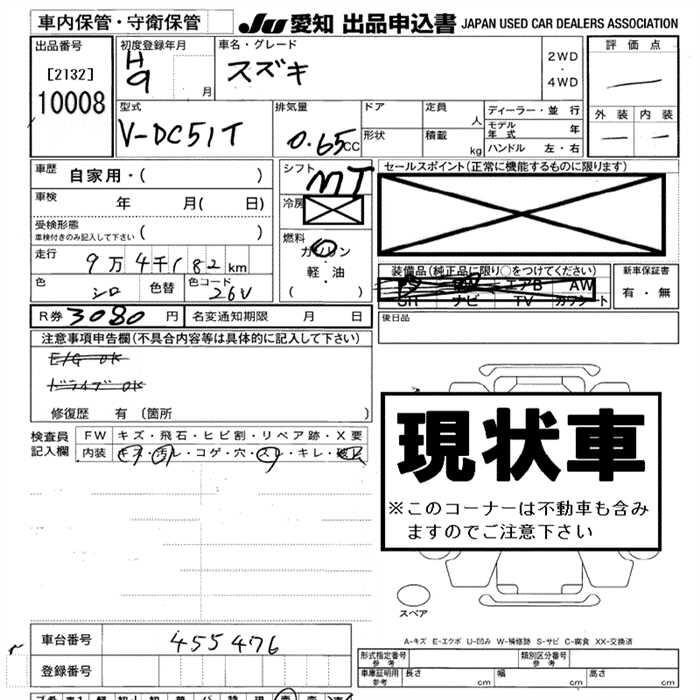 車内保管・守衛保管
JU 愛知 出品申込書 JAPAN USED CAR DEALERS ASSOCIATION
出品番号
[2132]
10008
初度登録年月
H
9 月
車名・グレード
スズキ
2WD
・
4WD
評価点
外装 内装
型式
V-DC51T
排気量
0.65 CC
ドア
形状
定員 人
積載 kg
ディーラー・並行
モデル年式 年
ハンドル 左・右
車歴 自家用・( )
車検 年 月( 日)
受検形態
車検付きのみ記入して下さい ( )
走行 9万4千182km
色 シロ 色替 色コード 26V
R券 3080 円 名変通知期限 月 日
シフト MT
冷房
燃料
ガソリン
・
軽・油
( )
セールスポイント(正常に機能するものに限ります)
装備品(純正品に限り○をつけてください)
エアB AW
SR ナビ TV カワシート
新車保証書
有・無
後日品
注意事項申告欄(不具合内容等は具体的に記入して下さい)
E/G OK
ドライブ OK
修復歴 有(箇所 )
検査員記入欄
FW キズ・飛石・ヒビ割・リペア跡・X要
内装 キズ・汚レ・コゲ・穴・スレ・キレ・破レ
現状車
※このコーナーは不動車も含み
ますのでご注意下さい
スペア
A-キズ E-エクボ U-凹み W-補修跡 S-サビ C-腐食 XX-交換済
車台番号 455476
登録番号
形式指定番号 参考
類別区分番号 参考
車庫証明用 参考 長さ cm 幅 cm 高さ cm